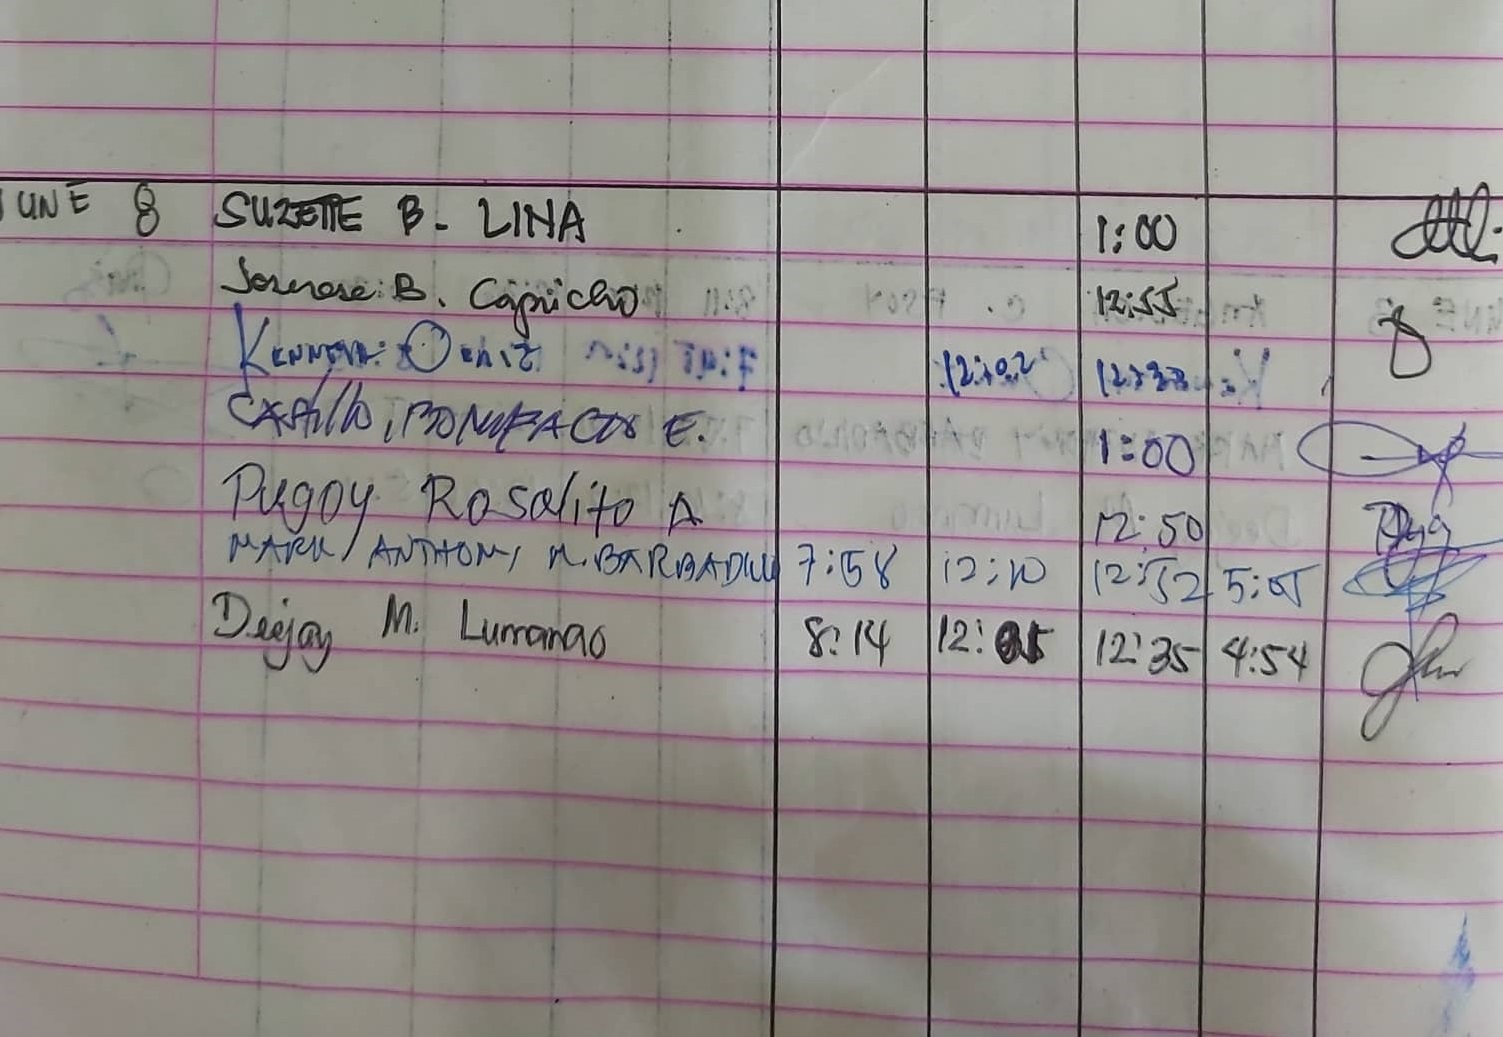 JUNE 8 SUZETTE B. LINA 1:00
B. Capricho 12:55
Kenneth 12:02
CASTILLO, BONIFACIO E. 1:00
Pugoy Rosalito A 12:50
MARK ANTHONY M. BARBADILLO 7:58 12:10 12:52 5:05
Deejay M. Lumanao 8:14 12:05 12:35 4:54